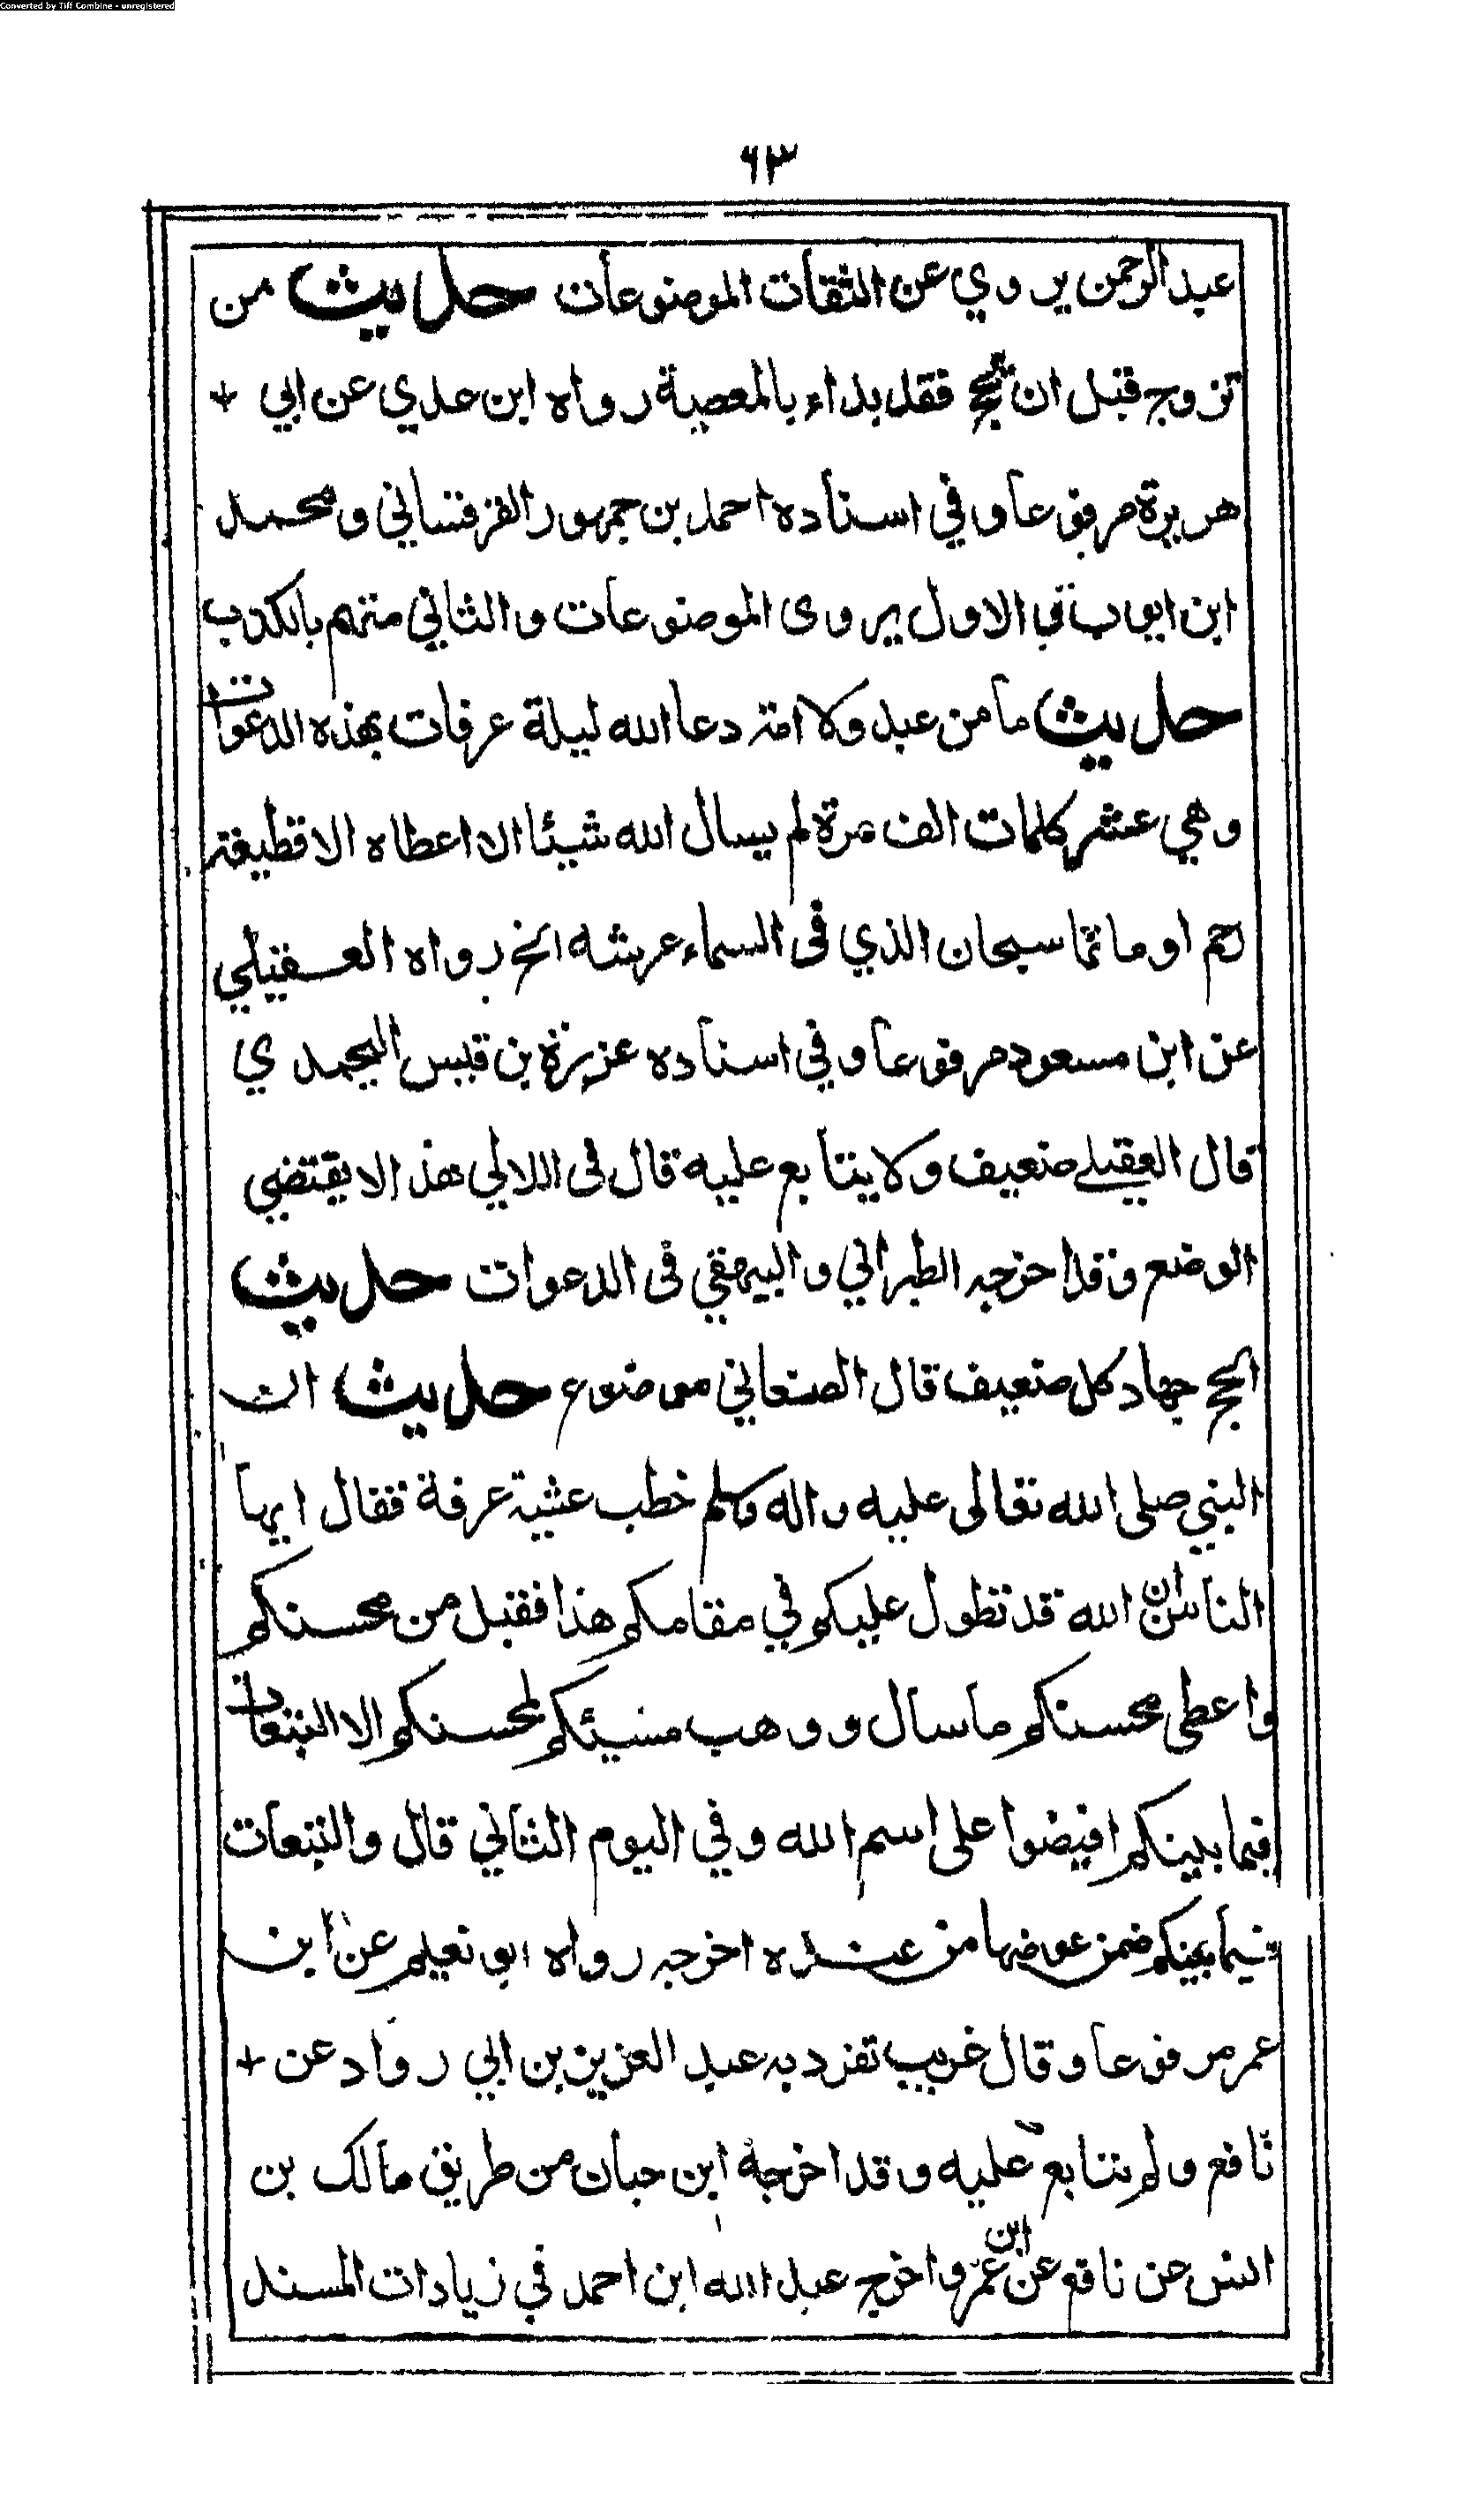 Converted by Tiff Combine - unregistered
٦٣
عبدالرحمن يروي عن الثقات الموضوعات حديث من
تزوج قبل ان يحج فقد بداء بالمعصية رواه ابن عدي عن ابي +
هريرة مرفوعا وفي اسناده احمد بن جمهور القرقساني ومحمد
ابن ايوب في الاول يروى الموضوعات والثاني متهم بالكذب
حديث ما من عبد ولا امة دعا الله ليلة عرفات بهذه الدعوات
وهي عشر كلمات الف مرة لم يسال الله شيئا الا اعطاه الا قطيعة
رحم او ماثما سبحان الذي فى السماء عرشه الخ رواه العقيلي
عن ابن مسعود مرفوعا وفي اسناده عزرة بن قيس اليحمدي
قال العقيلے ضعيف ولا يتابع عليه قال فى اللالي هذا لا يقتضي
الوضع وقد اخرجه الطبراني والبيهقي فى الدعوات حديث
الحج جهاد كل ضعيف قال الصنعاني موضوع حديث ان
النبي صلى الله تعالى عليه واله وسلم خطب عشية عرفة فقال ايها
الناس ان الله قد تطول عليكم في مقامكم هذا فقبل من محسنكم
واعطى محسنكم ما سال ووهب مسيئكم لمحسنكم الا التبعات
فيما بينكم افيضوا على اسم الله وفي اليوم الثاني قال والتبعات
فيما بينكم ضمن عوضها من عنده اخرجه رواه ابو نعيم عن ابن
عمر مرفوعا وقال غريب تفرد به عبد العزيز بن ابي رواد عن +
نافع ولم يتابع عليه وقد اخرجه ابن حبان من طريق مالك بن
انس عن نافع عن ابن عمر واخرج عبد الله ابن احمد في زيادات المسند